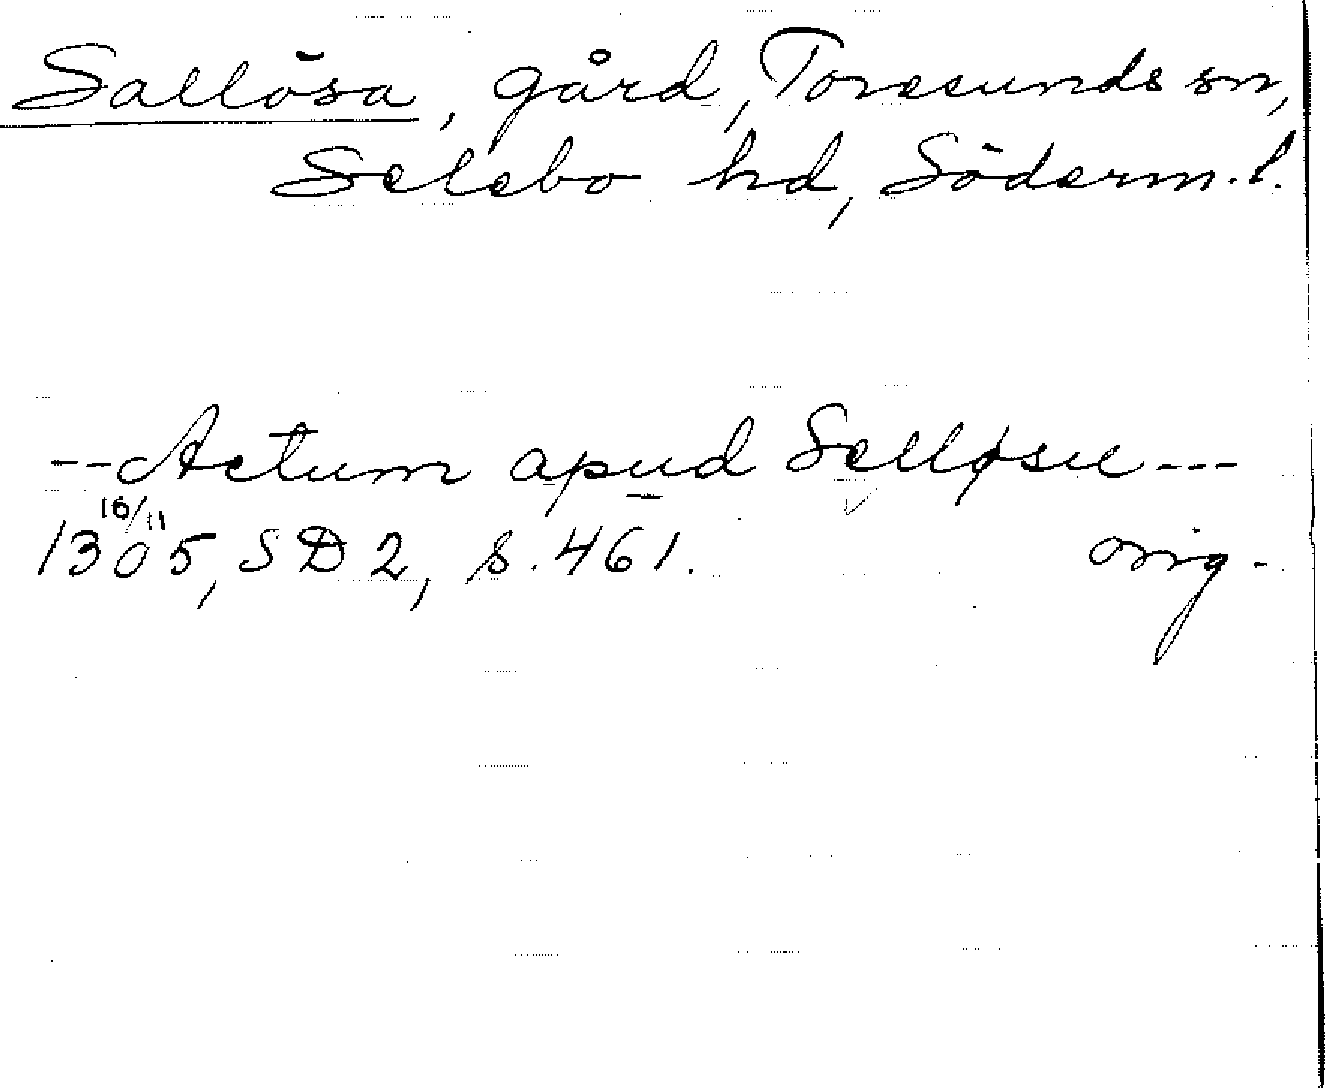 Sallösa, gård, Toresunds sn,
Selebo hd, Söderm. l.
--Actum apudSelløsu---
16/11
1305, SD 2, s. 461. orig.